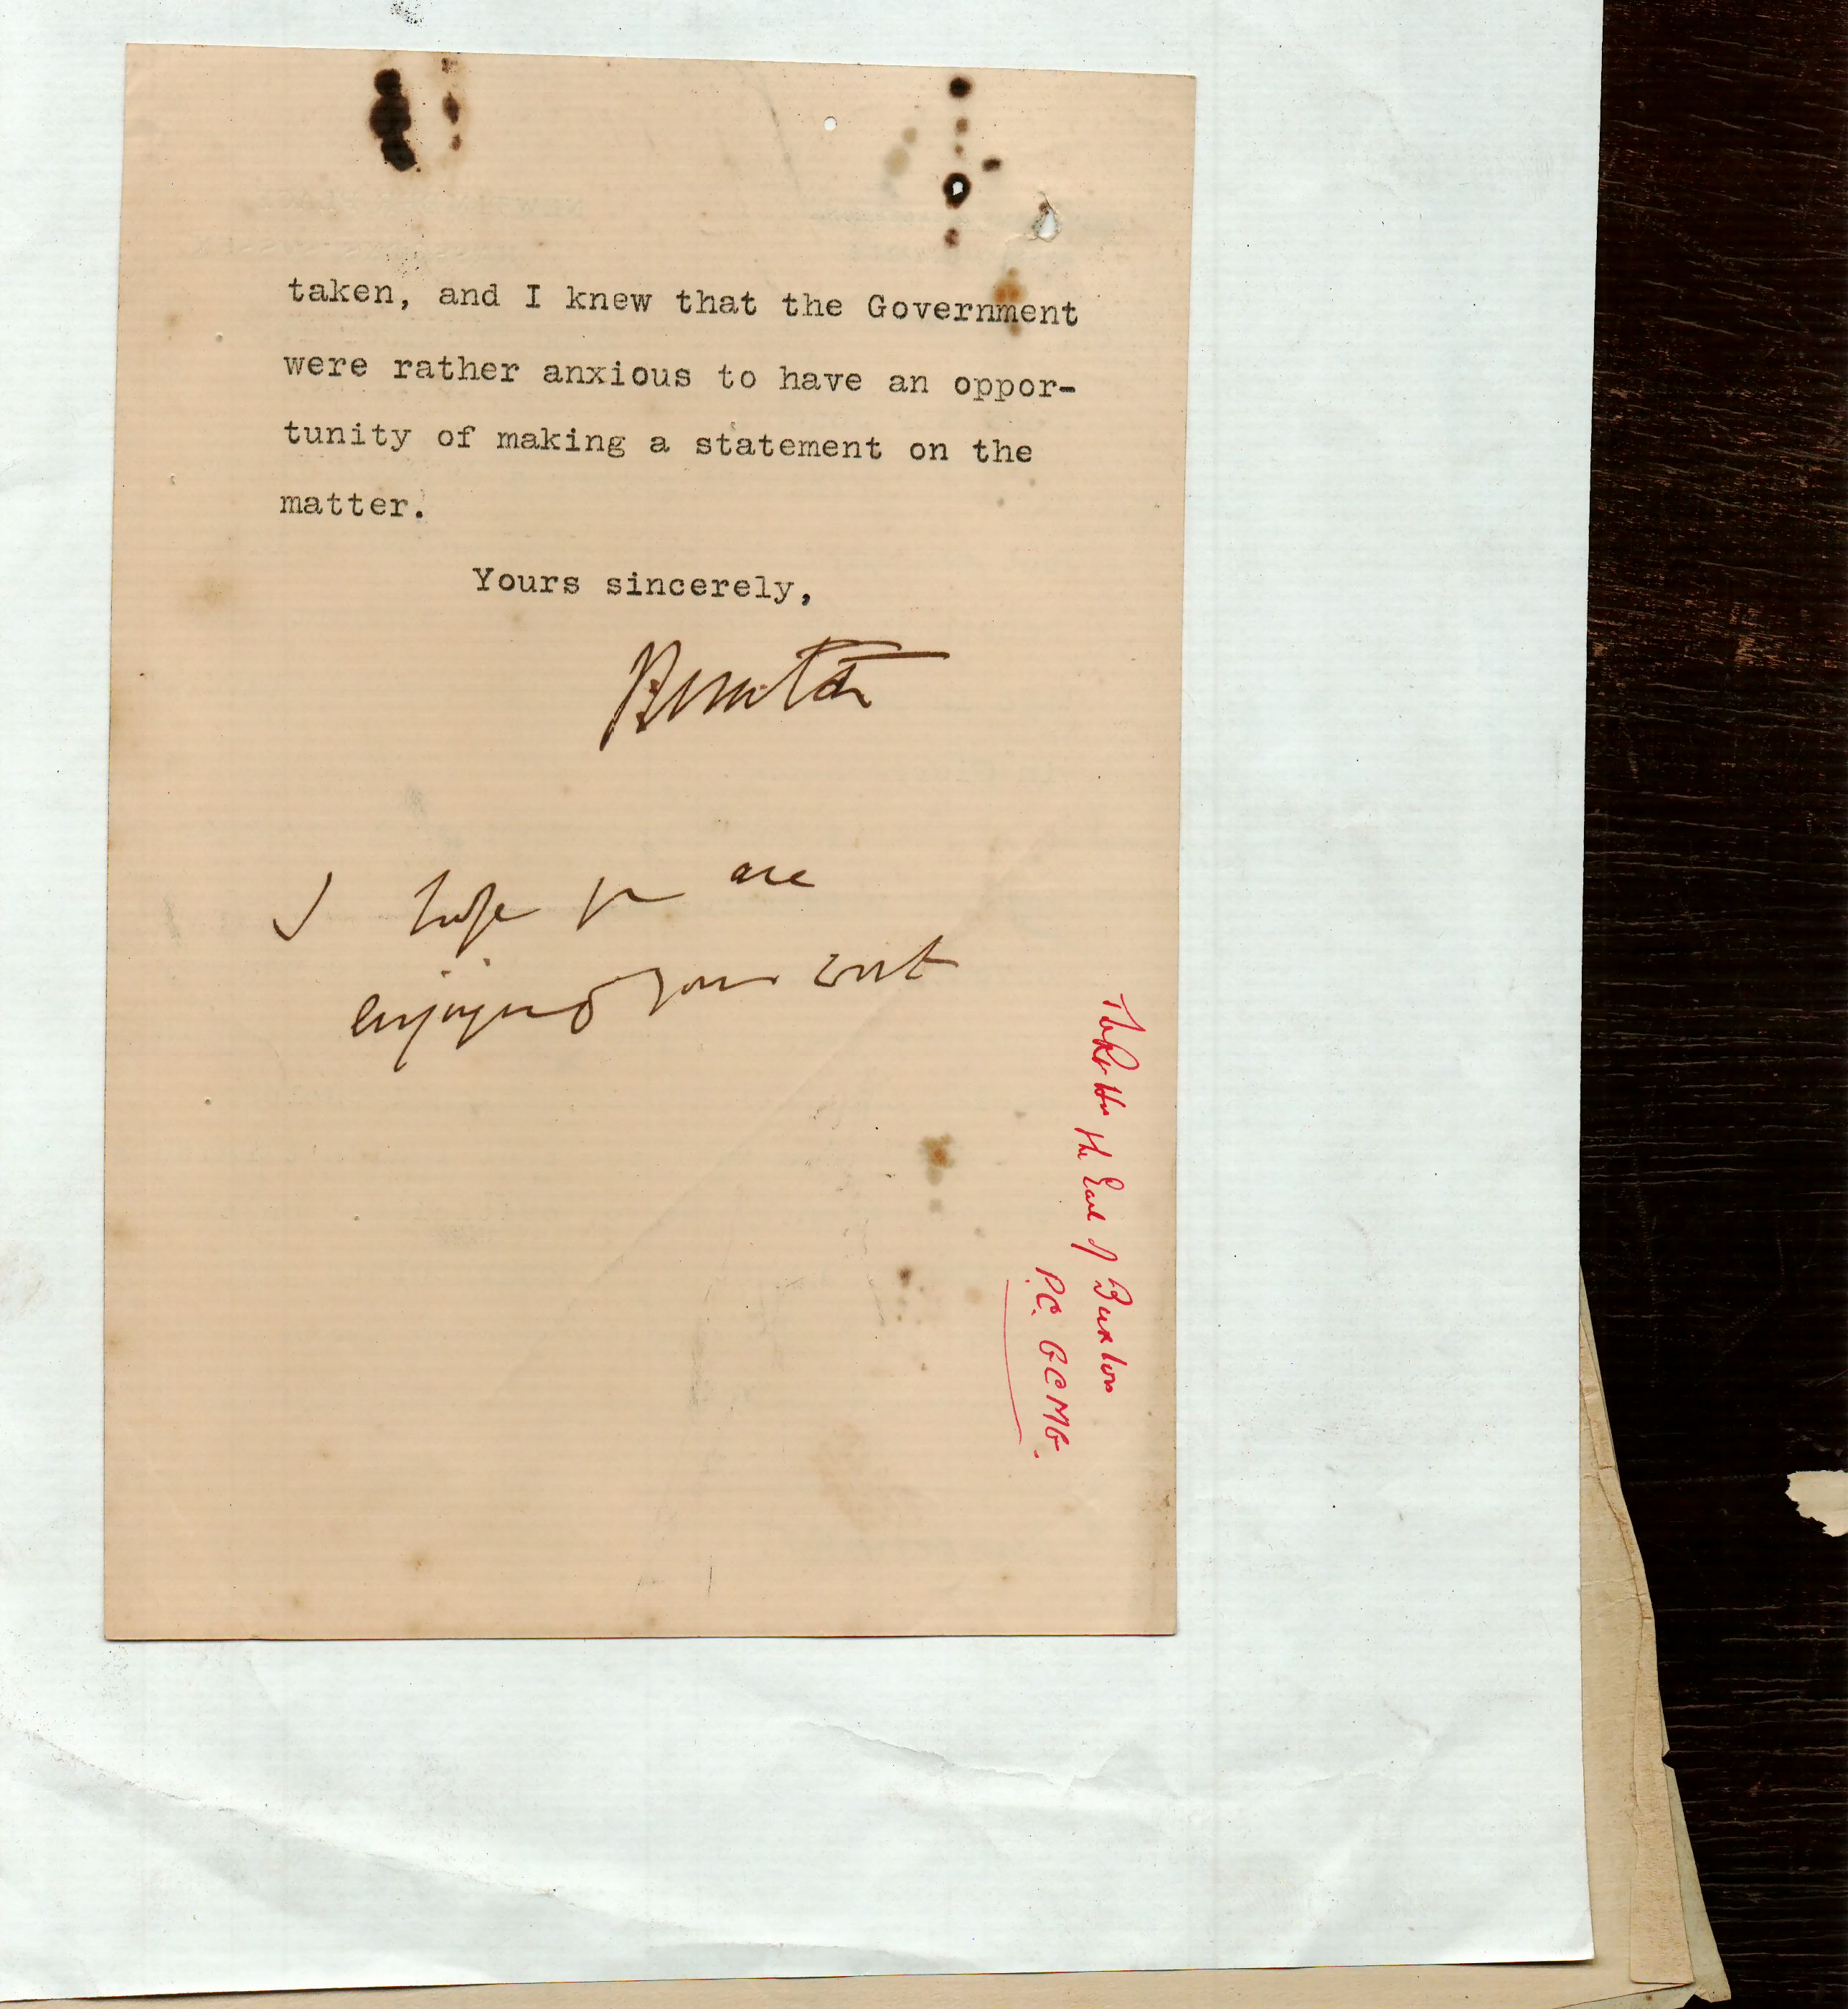 taken, and I knew that the Government
were rather anxious to have an oppor-
tunity of making a statement on the
matter.
Yours sincerely,
I hope you are
enjoying your work
The Rt Hon the Earl of Buxton
P.C. GCMG.